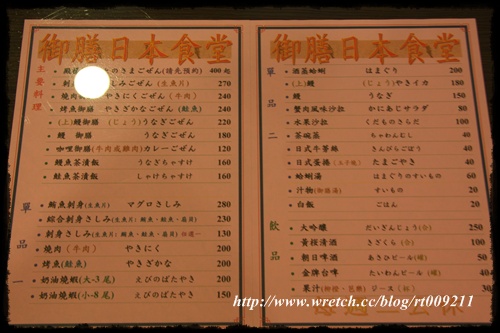 御膳日本食堂
主要料理
さまごぜん(請先預約) 400起
しみごぜん(生魚片) 270
やきにくごぜん(牛肉) 240
烤魚御膳 やきざかなごぜん(鮭魚) 240
(上)鰻 御膳 (じょう)うなぎごぜん 220
鰻 御膳 うなぎごぜん 180
咖哩御膳(牛肉或雞肉)カレーごぜん 180
鰻魚茶漬飯 うなぎちゃずけ 160
鮭魚茶漬飯 しゃけちゃずけ 160
單品一
鮪魚刺身(生魚片) マグロさしみ 280
綜合刺身さしみ 230
刺身さしみ 130
燒肉(牛肉) やきにく 200
烤魚(鮭魚) やきざかな 200
奶油燒蝦(大-3尾) えびのばたやき 250
奶油燒蝦(小-8尾) えびのばたやき 150
御膳日本食堂
單品二
酒蒸蛤蜊 はまぐり 200
(上)鰻 (じょう)やきイカ 180
鰻 うなぎ 150
蟹肉風味沙拉 かにあじサラダ 80
水果沙拉 くだものさらだ 80
茶碗蒸 ちゃわんむし 40
日式牛蒡絲 きんぴらごぼう 40
日式蛋捲(玉子燒) たまごやき 40
蛤蜊湯 はまぐりのすいもの 60
汁物(御膳湯) すいもの 20
白飯 ごはん 20
飲品
大吟釀 だいぎんじょう 250
黃櫻清酒 きざくら 100
朝日啤酒 あさひビール 60
金牌台啤 たいわんビール 40
果汁 ジース 30
http://www.wretch.cc/blog/rt009211